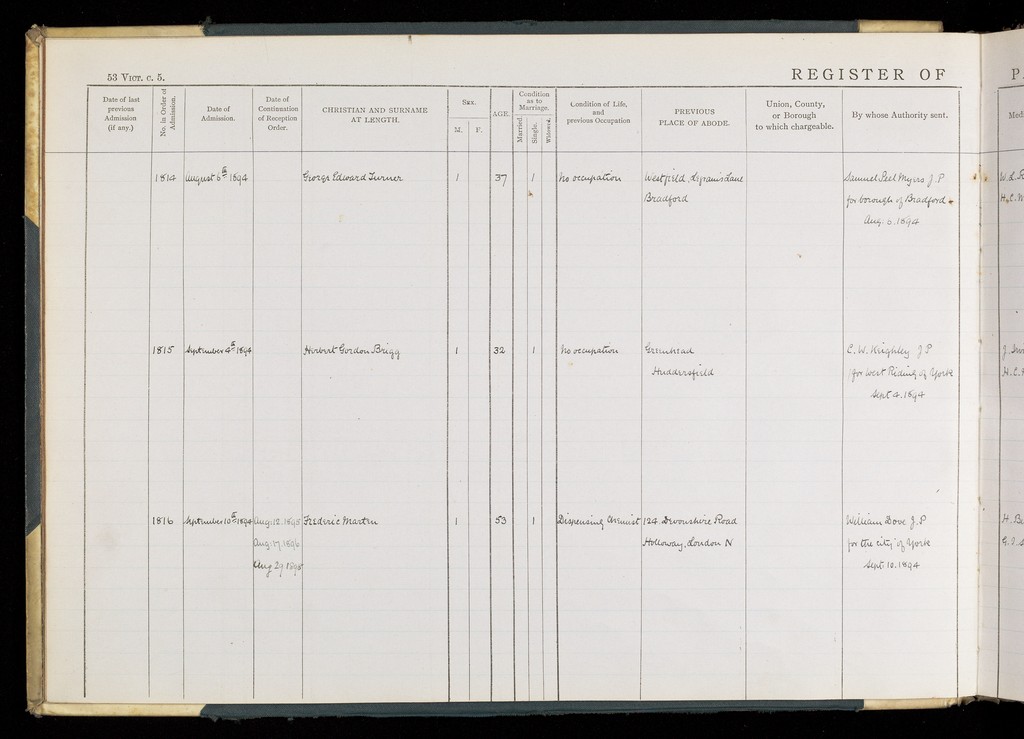 53 Vict. c. 5.
REGISTER OF
P
Date of last previous Admission (if any.)
No. in Order of Admission.
Date of Admission.
Date of Continuation of Reception Order.
CHRISTIAN AND SURNAME AT LENGTH.
Sex.
M. F.
AGE.
Condition as to Marriage.
Married. Single. Widowed.
Condition of Life, and previous Occupation
PREVIOUS PLACE OF ABODE.
Union, County, or Borough to which chargeable.
By whose Authority sent.
Med
1814 August 6th 1894 George Edward Turner 1 37 1 No occupation Westfield, Lane Samuel Peel Myers J.P
Bradford for borough of Bradford
Aug: 5. 1894
1815 September 4th 1894 Herbert Gordon Brigg 1 32 1 No occupation Greenhead C. W. Keighley J P
Huddersfield for West Riding of Yorks
Sept 4. 1894
1816 September 10th 1894 Aug: 12. 1895 Frederic Martin 1 53 1 Dispensing Chemist 124. Devonshire Road William Dove J.P
Aug: 17. 1896 Holloway, London N for the city of Yorks
Aug 29 1898 Sept 10. 1894